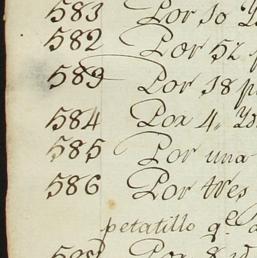 583 Por 10
582 Por 52
583 Por 18
584 Por 4
585 Por una
586 Por tres
petatillo q.e
Por 8